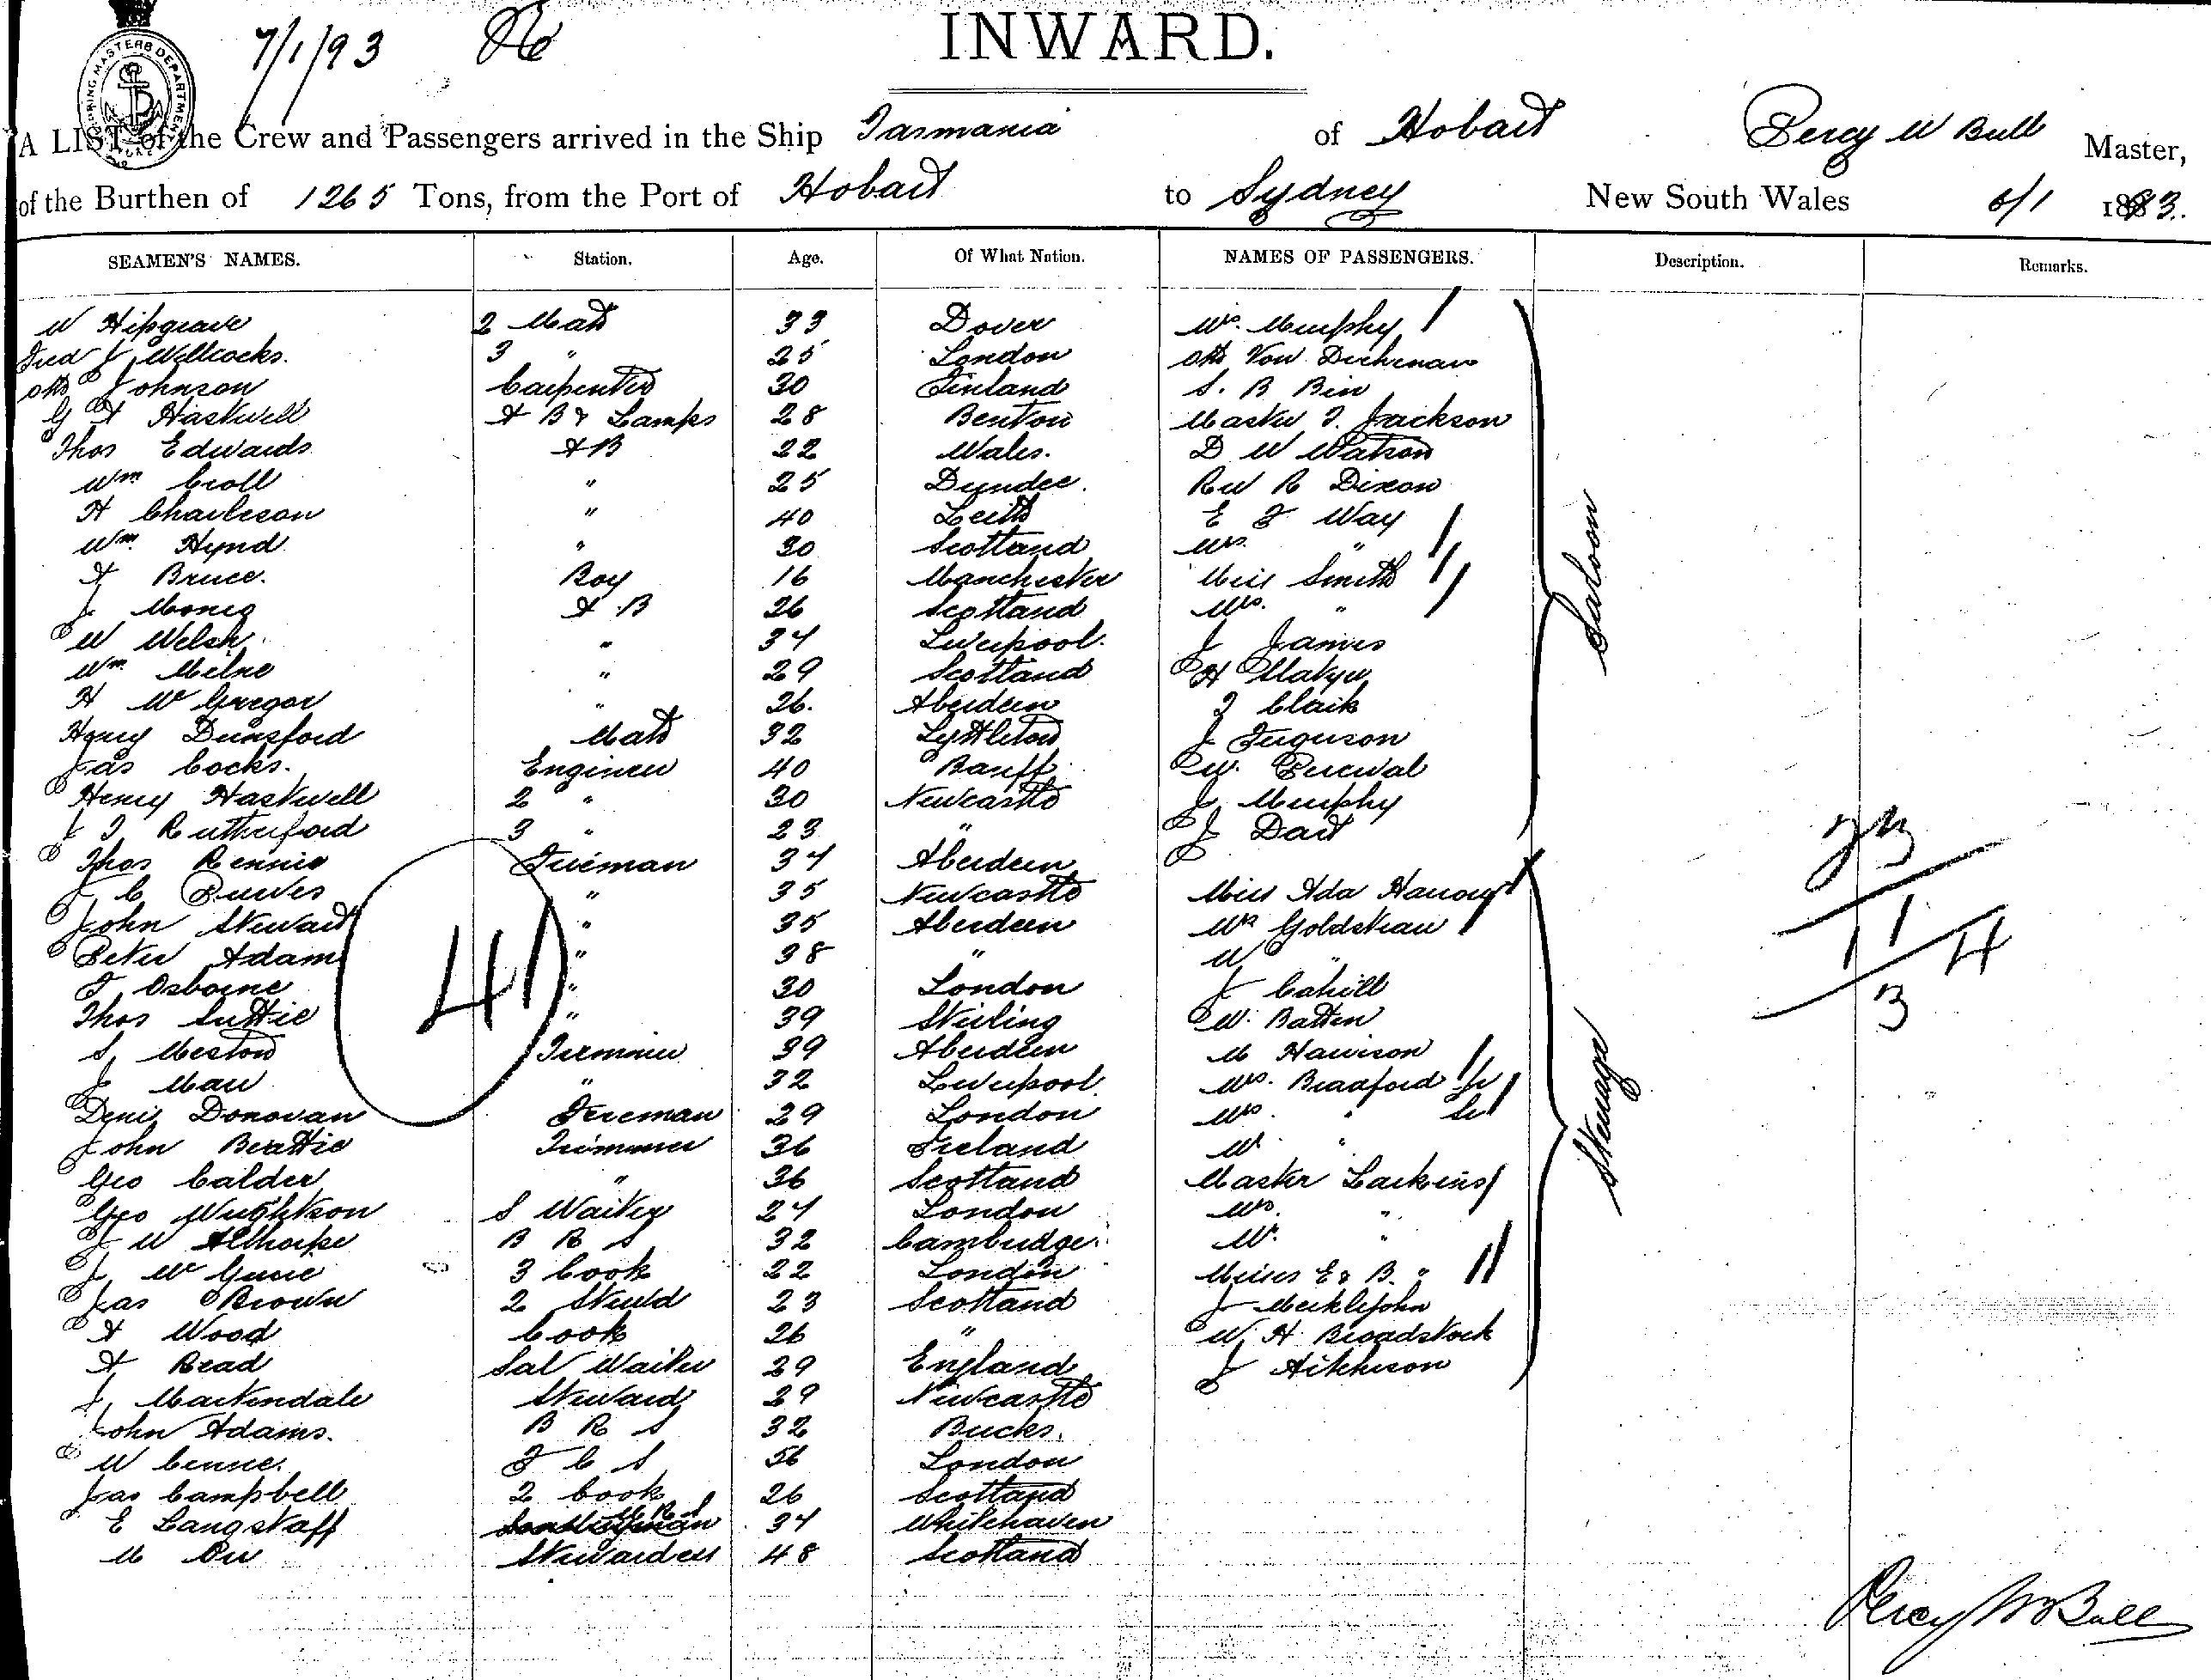 7/1/93
INWARD.
SHIPPING MASTERS DEPARTMENT
A LIST of the Crew and Passengers arrived in the Ship Tasmania of Hobart Percy W Bull Master,
of the Burthen of 1265 Tons, from the Port of Hobart to Sydney New South Wales 6/1 1893.
SEAMEN'S NAMES. Station. Age. Of What Nation. NAMES OF PASSENGERS. Description. Remarks.
W Hipgrave 2 Mate 33 Dover Mrs. Murphy
Fred J Willcocks. 3 " 25 London Otto Von
Otto Johnson Carpenter 30 Finland S. B Bin
G A Haskwell A B & Lamps 28 Benton Master T. Jackson
Thos Edwards AB 22 Wales. D W Watson
Wm Croll " 25 Dundee. Rev R Dixon
A Charleson " 40 Leith E J Way
Wm. Hynd " 30 Scotland Mrs. "
A Bruce. Boy 16 Manchester Miss Smith
J A B 26 Scotland Mrs. "
W Welsh " 34 Liverpool. J James
Wm. Milne " 29 Scotland H
A Mc Gregor " 26. Aberdeen T Clark
Henry Dunsford Mate 32 Lyttleton J Ferguson
Jas Cocks. Engineer 40 Banff W. Percival
Henry Haskwell 2 " 30 Newcastle J Murphy
J T Rutherford 3 " 23 " J Dart
Saloon
Thos Rennie Fireman 34 Aberdeen
J C Purves " 35 Newcastle Miss Ada
John Stewart " 35 Aberdeen Mrs
Peter Adam " 38 " M "
41
F Osborne " 30 London J Cahill
Thos Suttie " 39 Stirling W. Batten
S Meston Trimmer 39 Aberdeen M Harrison
J Maw " 32 Liverpool. Mrs. Bradford Jr
Denis Donovan Fireman 29 London Mrs. " Sr
John Beattie Trimmer 36 Ireland M. "
Geo Calder " 36 Scotland Master Larkins
Geo Wrightson S Waiter 24 London Mrs. "
J W Althorpe B R S 32 Cambridge. Mr. "
J Mc 3 Cook 22 London Misses E & B. "
Jas Brown 2 Stewd 23 Scotland J Meiklejohn
A Wood Cook 26 " W. H. Broadstock
A Read Sal Waiter 29 England J Aitkison
Steerage
J, Martendale Steward 29 Newcastle
John Adams. B R S 32 Bucks.
W F C S 56 London
Jas Campbell 2 Cook 26 Scotland
E Langstaff 34 Whitehaven
M Orr Stewardess 48 Scotland
23
11
4
3
Percy W Bull